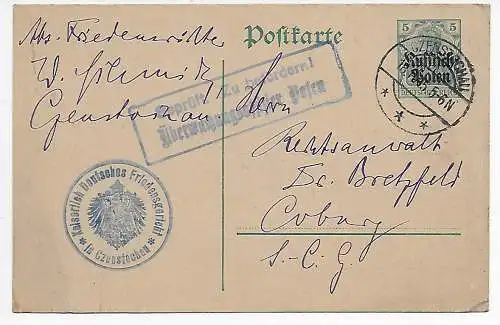 Postkarte
Abs. Friedensrichter
W. Schmitz
Czenstochau
Geprüft! Zu befördern!
Überwachungsoffizier Posen
Kaiserlich Deutsches Friedensgericht
in Czenstochau
5 5
CZENSTOCHAU
Russisch-
Polen
Herrn
Rechtsanwalt
Dr. Bretzfeld
Coburg
S.-C. G.